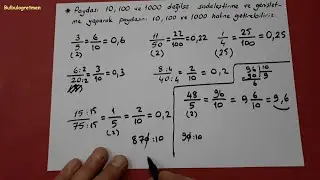 Bulbulogretmen
* Paydası 10, 100 ve 1000 değilse sadeleştirme ve genişlet-
me yaparak paydasını 10, 100 ve 1000 haline getirebiliriz.
3/5 = 6/10 = 0,6 11/50 = 22/100 = 0,22 1/4 = 25/100 = 0,25
(2) (2)
6:2/20:2 = 3/10 = 0,3 8:4/40:4 = 2/10 = 0,2
15:15/75:15 = 1/5 = 2/10 = 0,2 48/5 = 96/10 = 9 6/10 = 9,6
(2) (2)
870:10 90:10